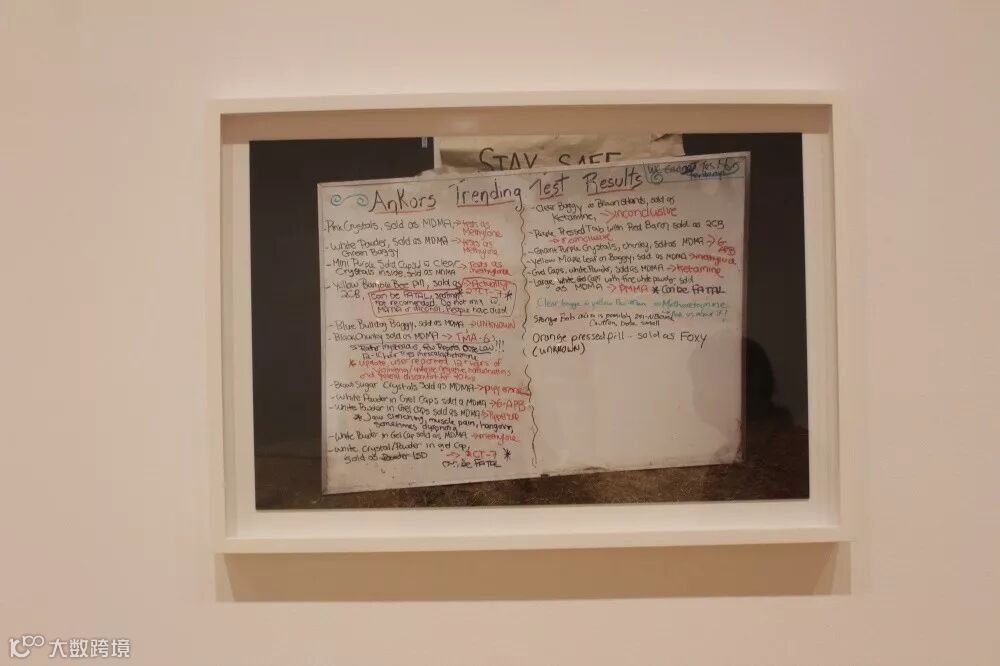 STAY SAFE
AnKors Trending Test Results
- Pink Crystals, Sold as MDMA → tests as
Methylone
- White Powder, Sold as MDMA → tests as
Green Baggy Methylone
- Mini Purple Gel Caps w Clear → tests as
Crystals inside, sold as MDMA methylone
- Yellow Bumble Bee pill, sold as
2CB, Can be FATAL,
not recommended. Do not mix w
MDMA or alcohol. People have died
*
- Blue Bulldog Baggy, sold as MDMA, → UNKNOWN
- Black Chunky sold as MDMA → TMA-6
few Reports Dose Low!!!
* update, user reported 12+ hours of
vomiting
and general discomfort for
- Brown Sugar Crystals Sold as MDMA →
- White Powder in Gel Caps sold as MDMA → 6-APB
- White Powder in Gel caps sold as MDMA →
* Jaw clenching, muscle pain, hangover,
sometimes
- White Powder in Gel Cap sold as MDMA → methylone
- White Crystal/Powder in gel Cap,
sold as LSD → *
Can Be FATAL
We cannot test for
- Clear Baggy w Brown Shards, sold as
Ketamine, → inconclusive
- Purple Pressed Tab with Red Baron, sold as 2CB
→ inconclusive
- Purple Crystals, chunky, sold as MDMA → 6-
APB
- Yellow Maple Leaf on Baggy, sold as MDMA → methylone
- Gel Caps, white Powder, sold as MDMA → Ketamine
- Large White Gel Caps with fine white powder sold
as MDMA → PMMA * Can be FATAL
Clear baggie w yellow Pac-man → Methoxetamine
Ask us about it!
is possibly
Caution, Dose small
Orange pressed pill - sold as Foxy
(UNKNOWN)
大数跨境